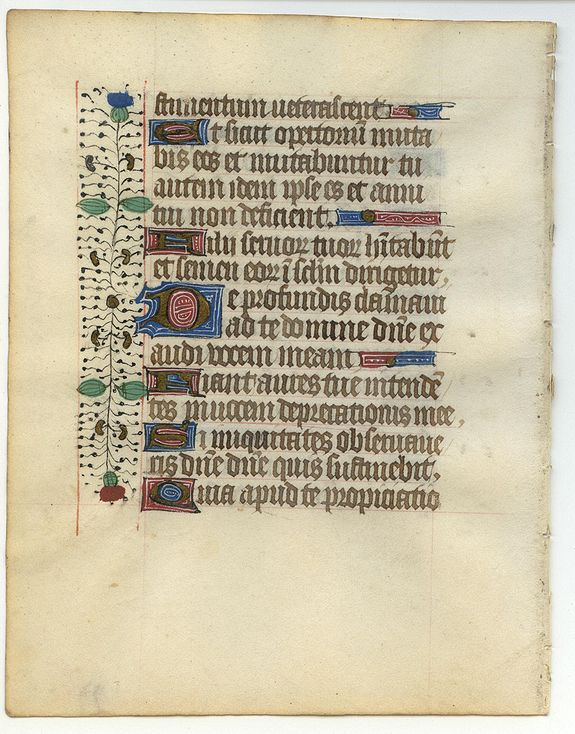 stimentum veterascent
Et sicut opertoriu muta
bis eos et mutabuntur tu
autem idem ipse es et anni
tui non deficient.
Filii seruor tuor hitabut
et semen eor i sclm dirigetur,
De profundis clamaui
ad te domine dne ex
audi vocem meam
Fiant aures tue intende
tes in vocem deprecationis mee,
Si iniquitates obseruaue
ris dne dne quis sustinebit,
Quia apud te propiciatio